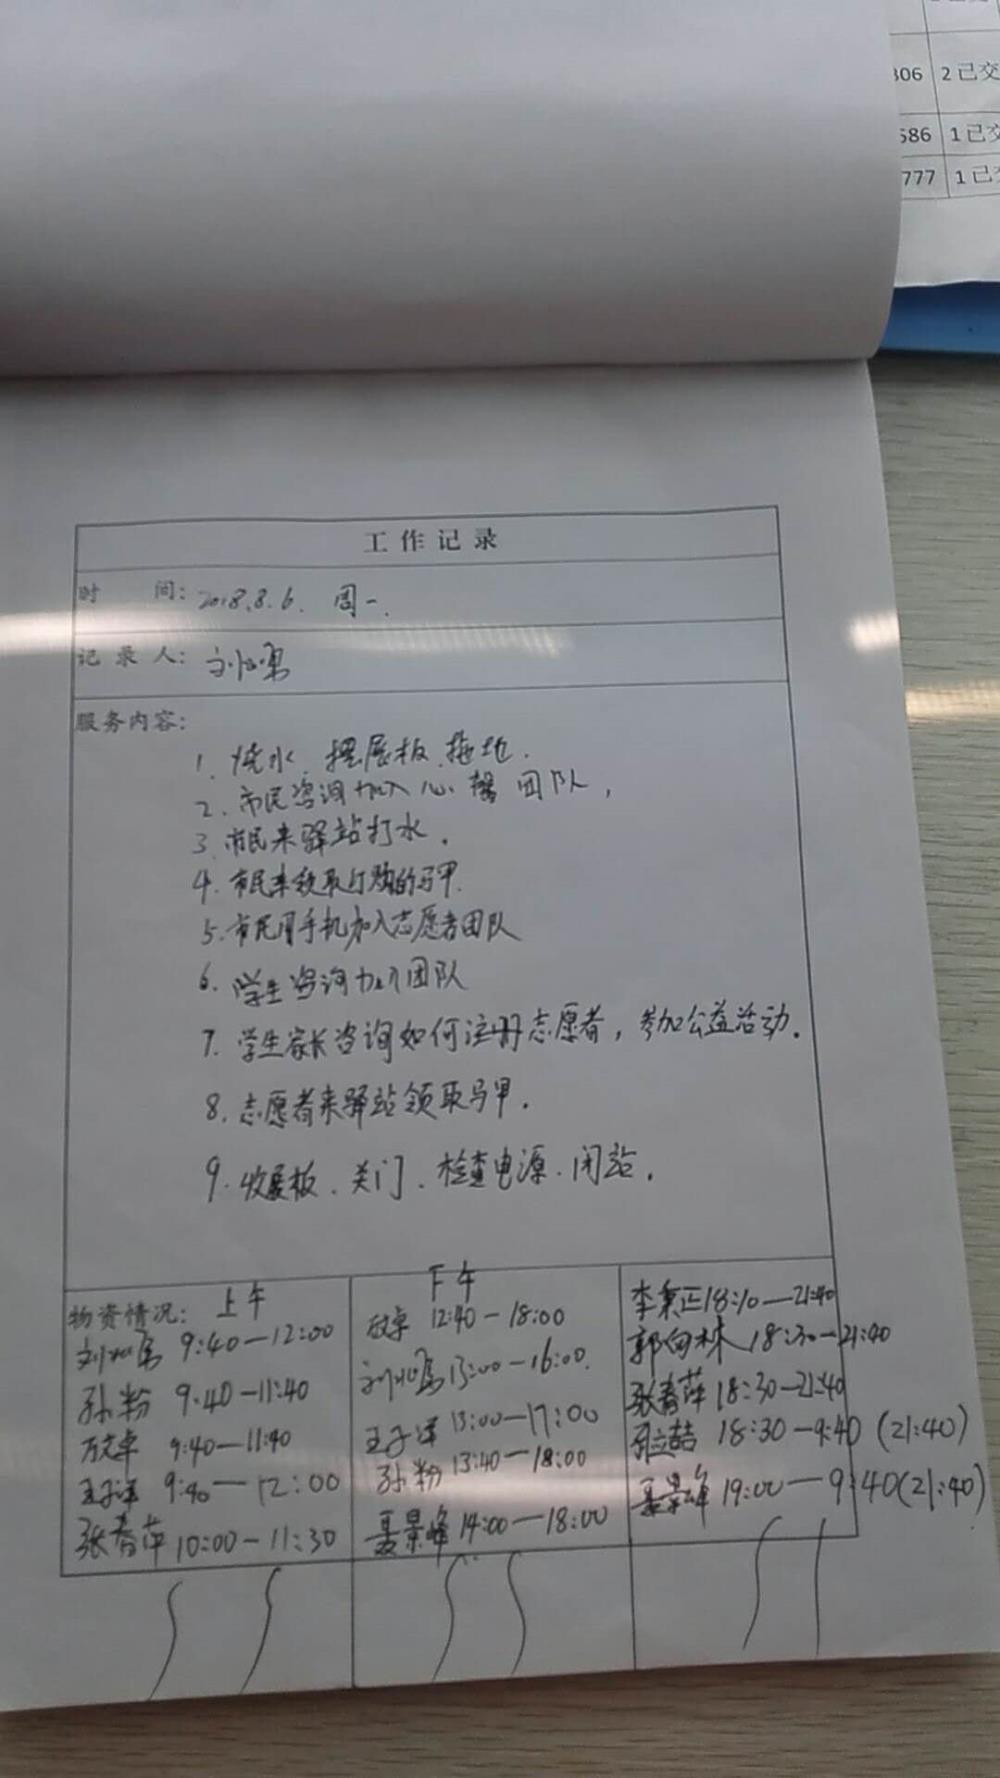 306 2 已交
586 1 已交
777 1 已
工作记录
时 间: 2018.8.6. 周一.
记录人:
服务内容:
1. 烧水、摆展板、拖地.
2. 市民咨询加入心馨团队,
3. 市民来驿站打水.
4. 市民来领取订购的马甲.
5. 市民用手机加入志愿者团队
6. 学生咨询加入团队
7. 学生家长咨询如何注册志愿者,参加公益活动.
8. 志愿者来驿站领取马甲.
9. 收展板、关门、检查电源、闭站.
物资情况: 上午
9:40—12:00
孙粉 9:40—11:40
9:40—11:40
王子洋 9:40—12:00
张春萍 10:00—11:30
下午
12:40—18:00
13:00—16:00.
王子洋 13:00—17:00
孙粉 13:40—18:00
聂景峰 14:00—18:00
李秉正 18:10—21:40
郭向林 18:30—21:40
张春萍 18:30—21:40
18:30—9:40 (21:40)
聂景峰 19:00—9:40 (21:40)